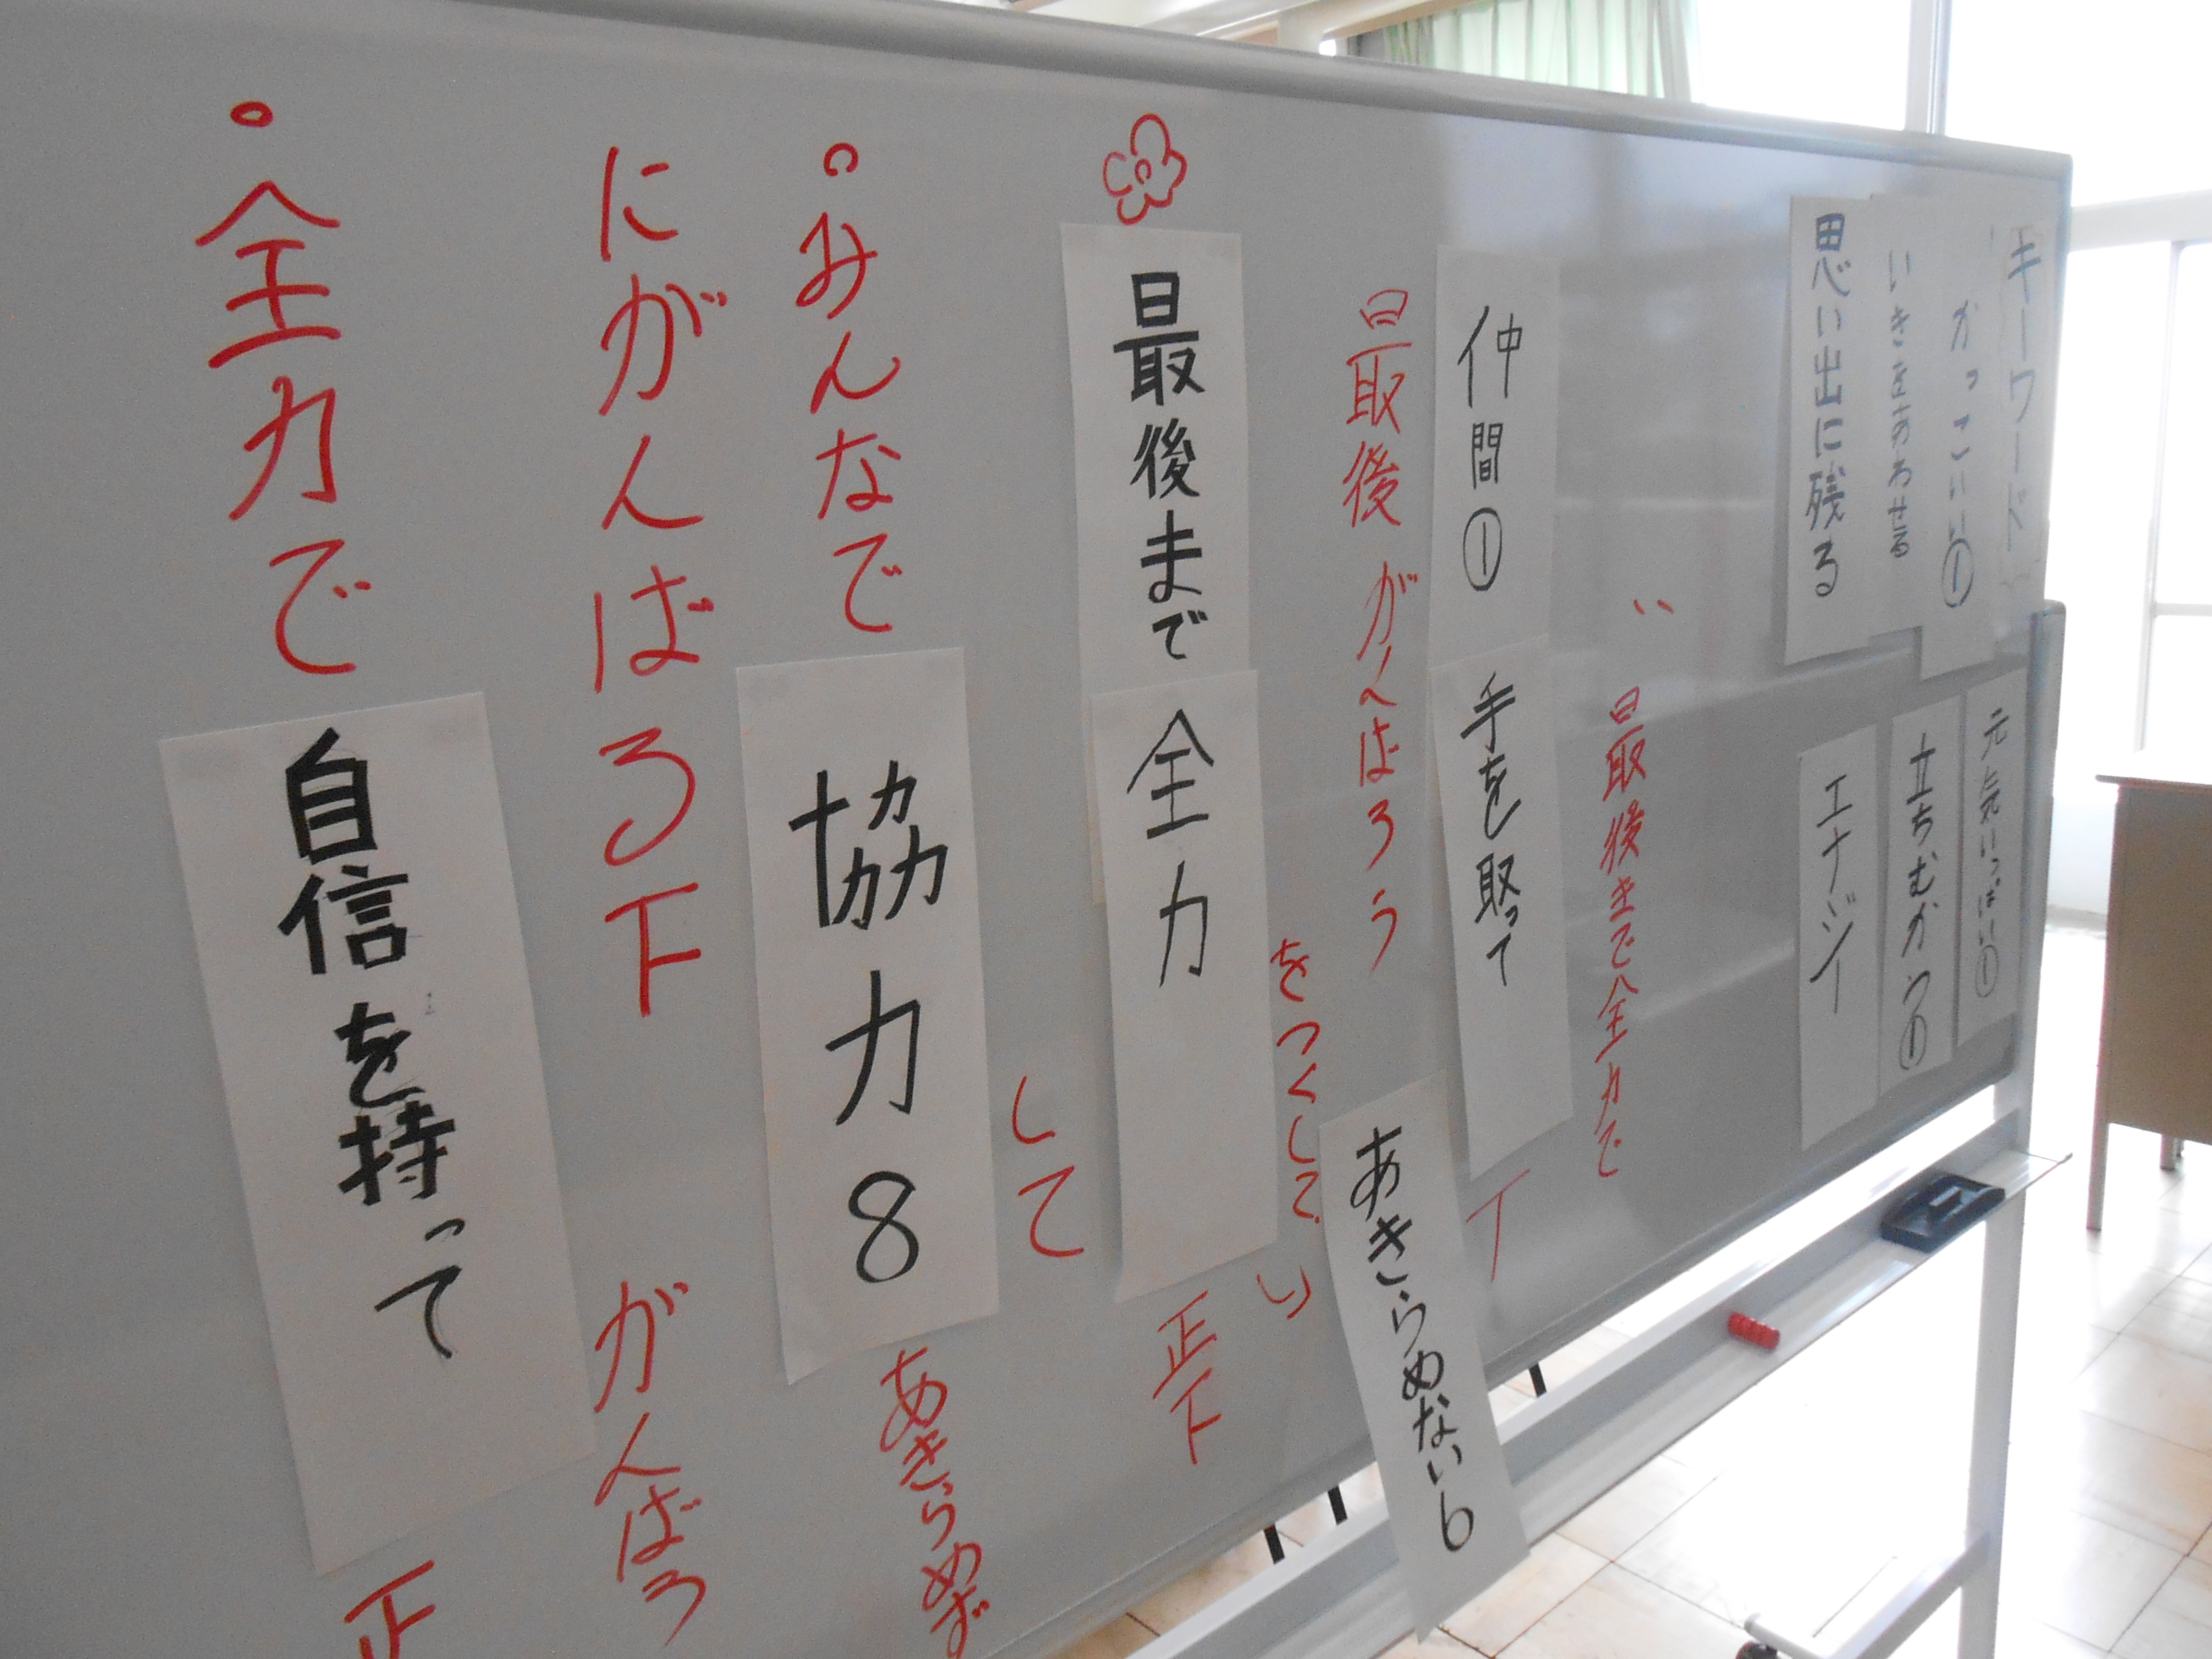 キーワード
かっこいい①
いきをあわせる
思い出に残る
元気いっぱい①
立ちむかう①
エナジー
い
最後まで全力で
仲間①
手を取って
最後
がんばろう
あきらめない6
最後まで
全力
をつくして
い
正下
みんなで
協力8
して
あきらめず
にがんばる下
がんばろう
全力で
自信を持って
正